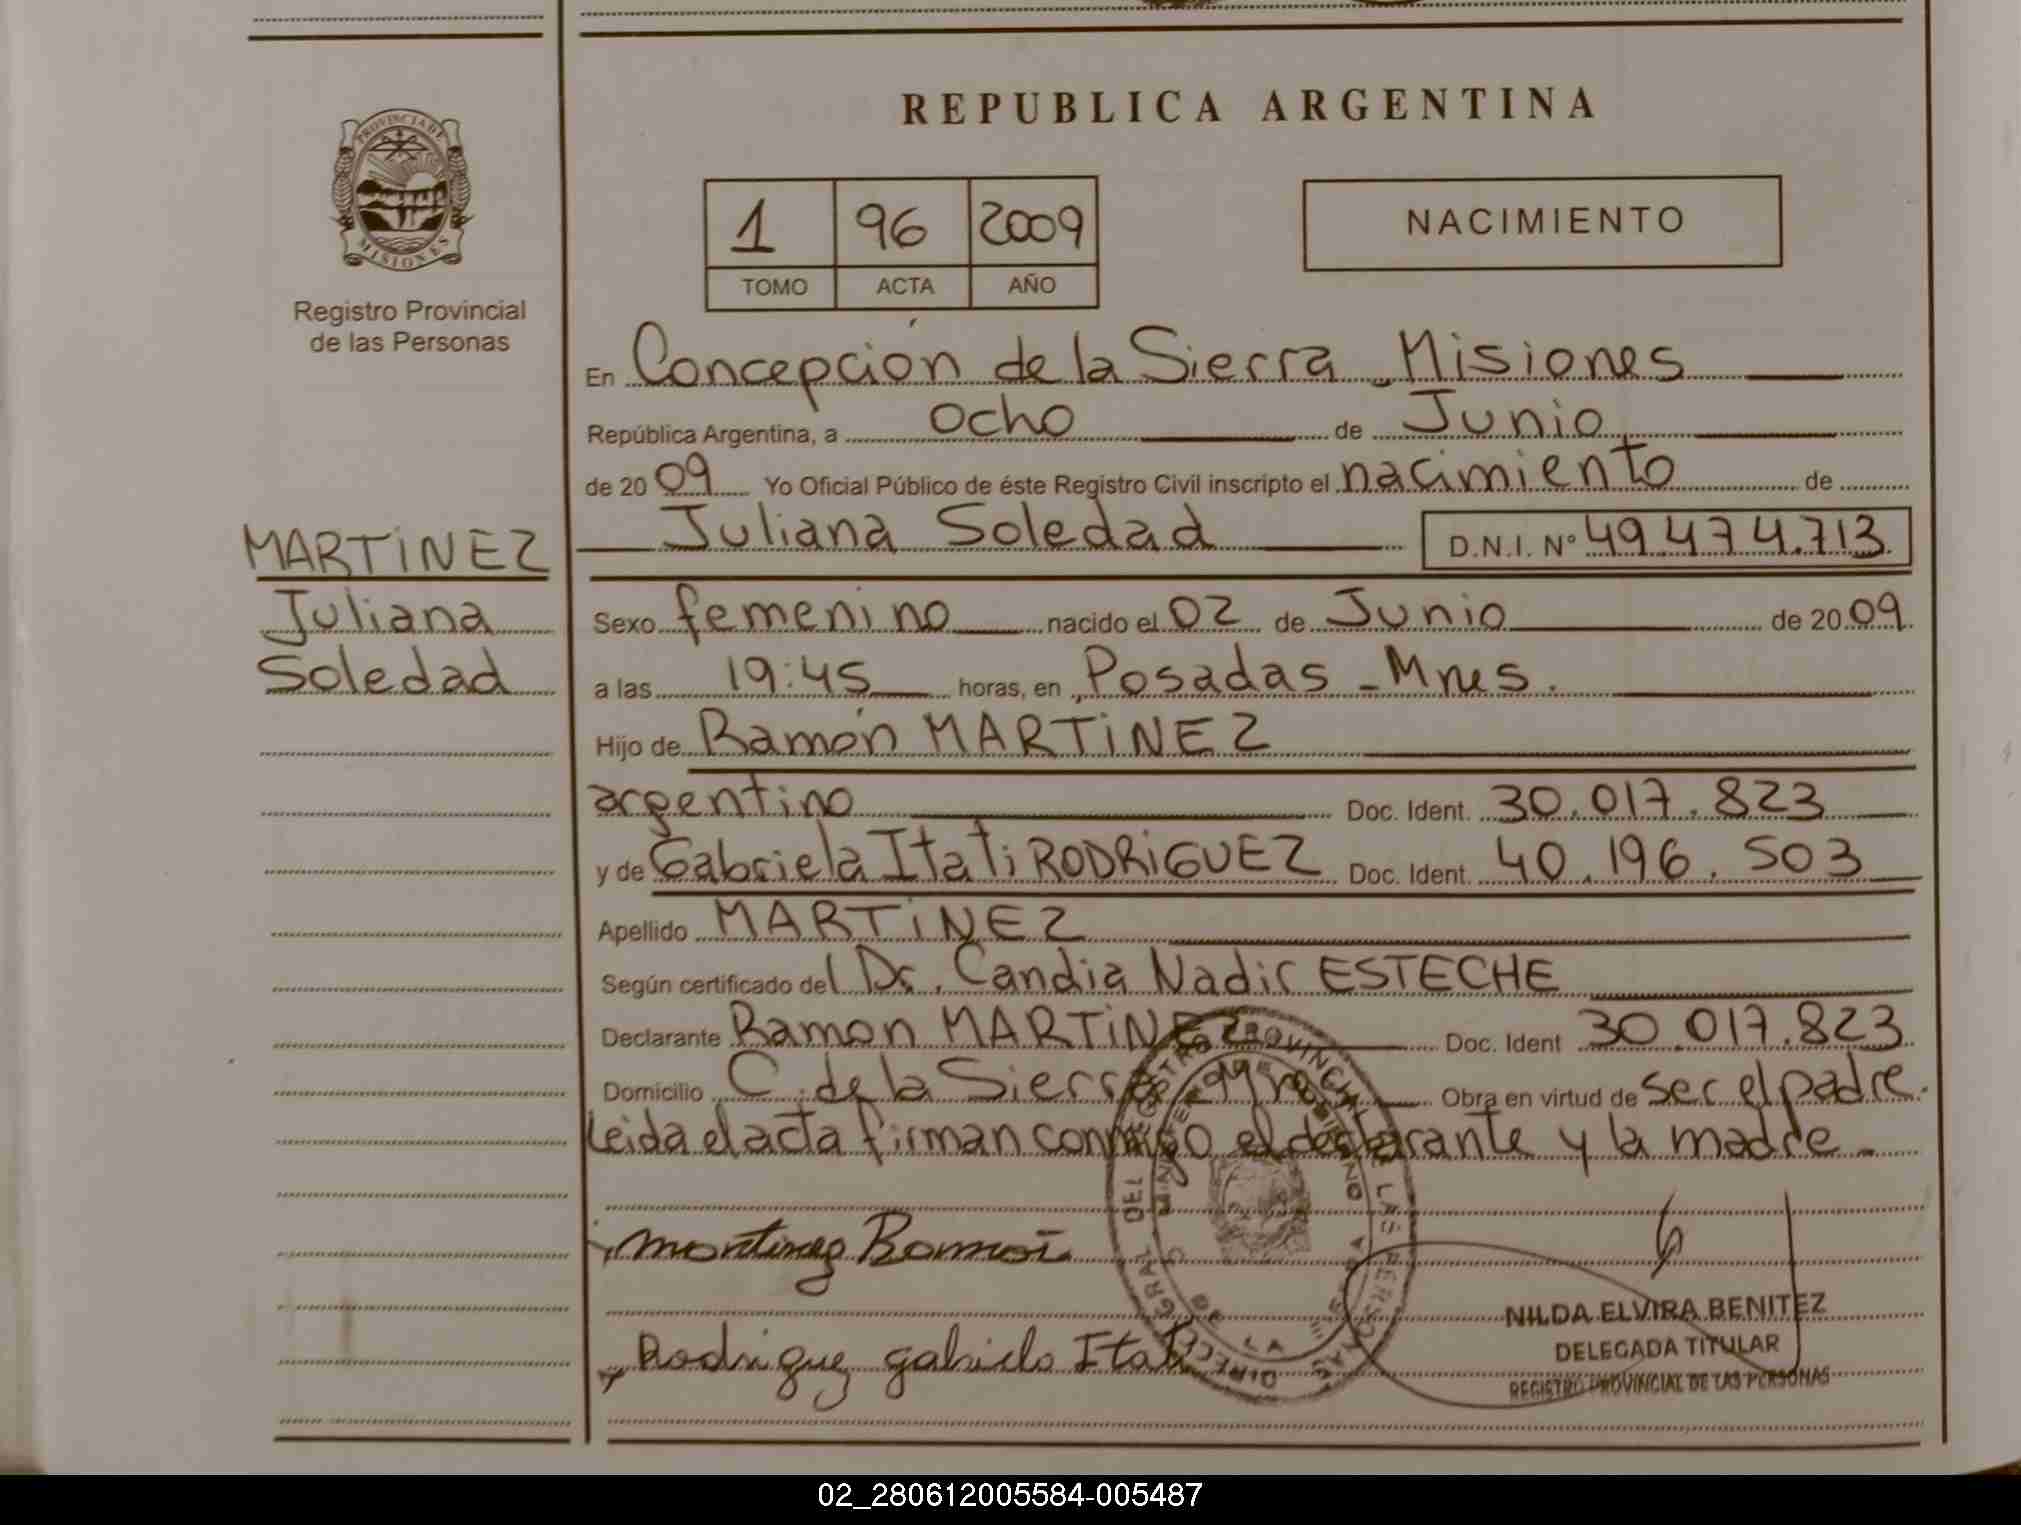 REPUBLICA ARGENTINA
PROVINCIA DE
MISIONES
Registro Provincial
de las Personas
1 96 2009
TOMO ACTA AÑO
NACIMIENTO
En Concepción de la Sierra - Misiones
República Argentina, a ocho de Junio
de 2009 Yo Oficial Público de éste Registro Civil inscripto el nacimiento de
Juliana Soledad D.N.I. Nº 49.474.713
MARTiNEZ
Juliana
Soledad
Sexo femenino nacido el 02 de Junio de 2009
a las 19:45 horas, en Posadas - Mnes.
Hijo de Ramón MARTiNEZ
argentino Doc. Ident. 30.017.823
y de Gabriela Itati RODRiGUEZ Doc. Ident. 40.196.503
Apellido MARTiNEZ
Según certificado del Dr. Candia Nadir ESTECHE
Declarante Ramon MARTiNEZ Doc. Ident 30.017.823
Domicilio C. de la Sierra Obra en virtud de ser el padre.
Leida el acta firman conmigo el declarante y la madre.
Martinez Ramon
Rodriguez gabriela Itati
NILDA ELVIRA BENITEZ
DELEGADA TITULAR
REGISTRO PROVINCIAL DE LAS PERSONAS
02_280612005584-005487